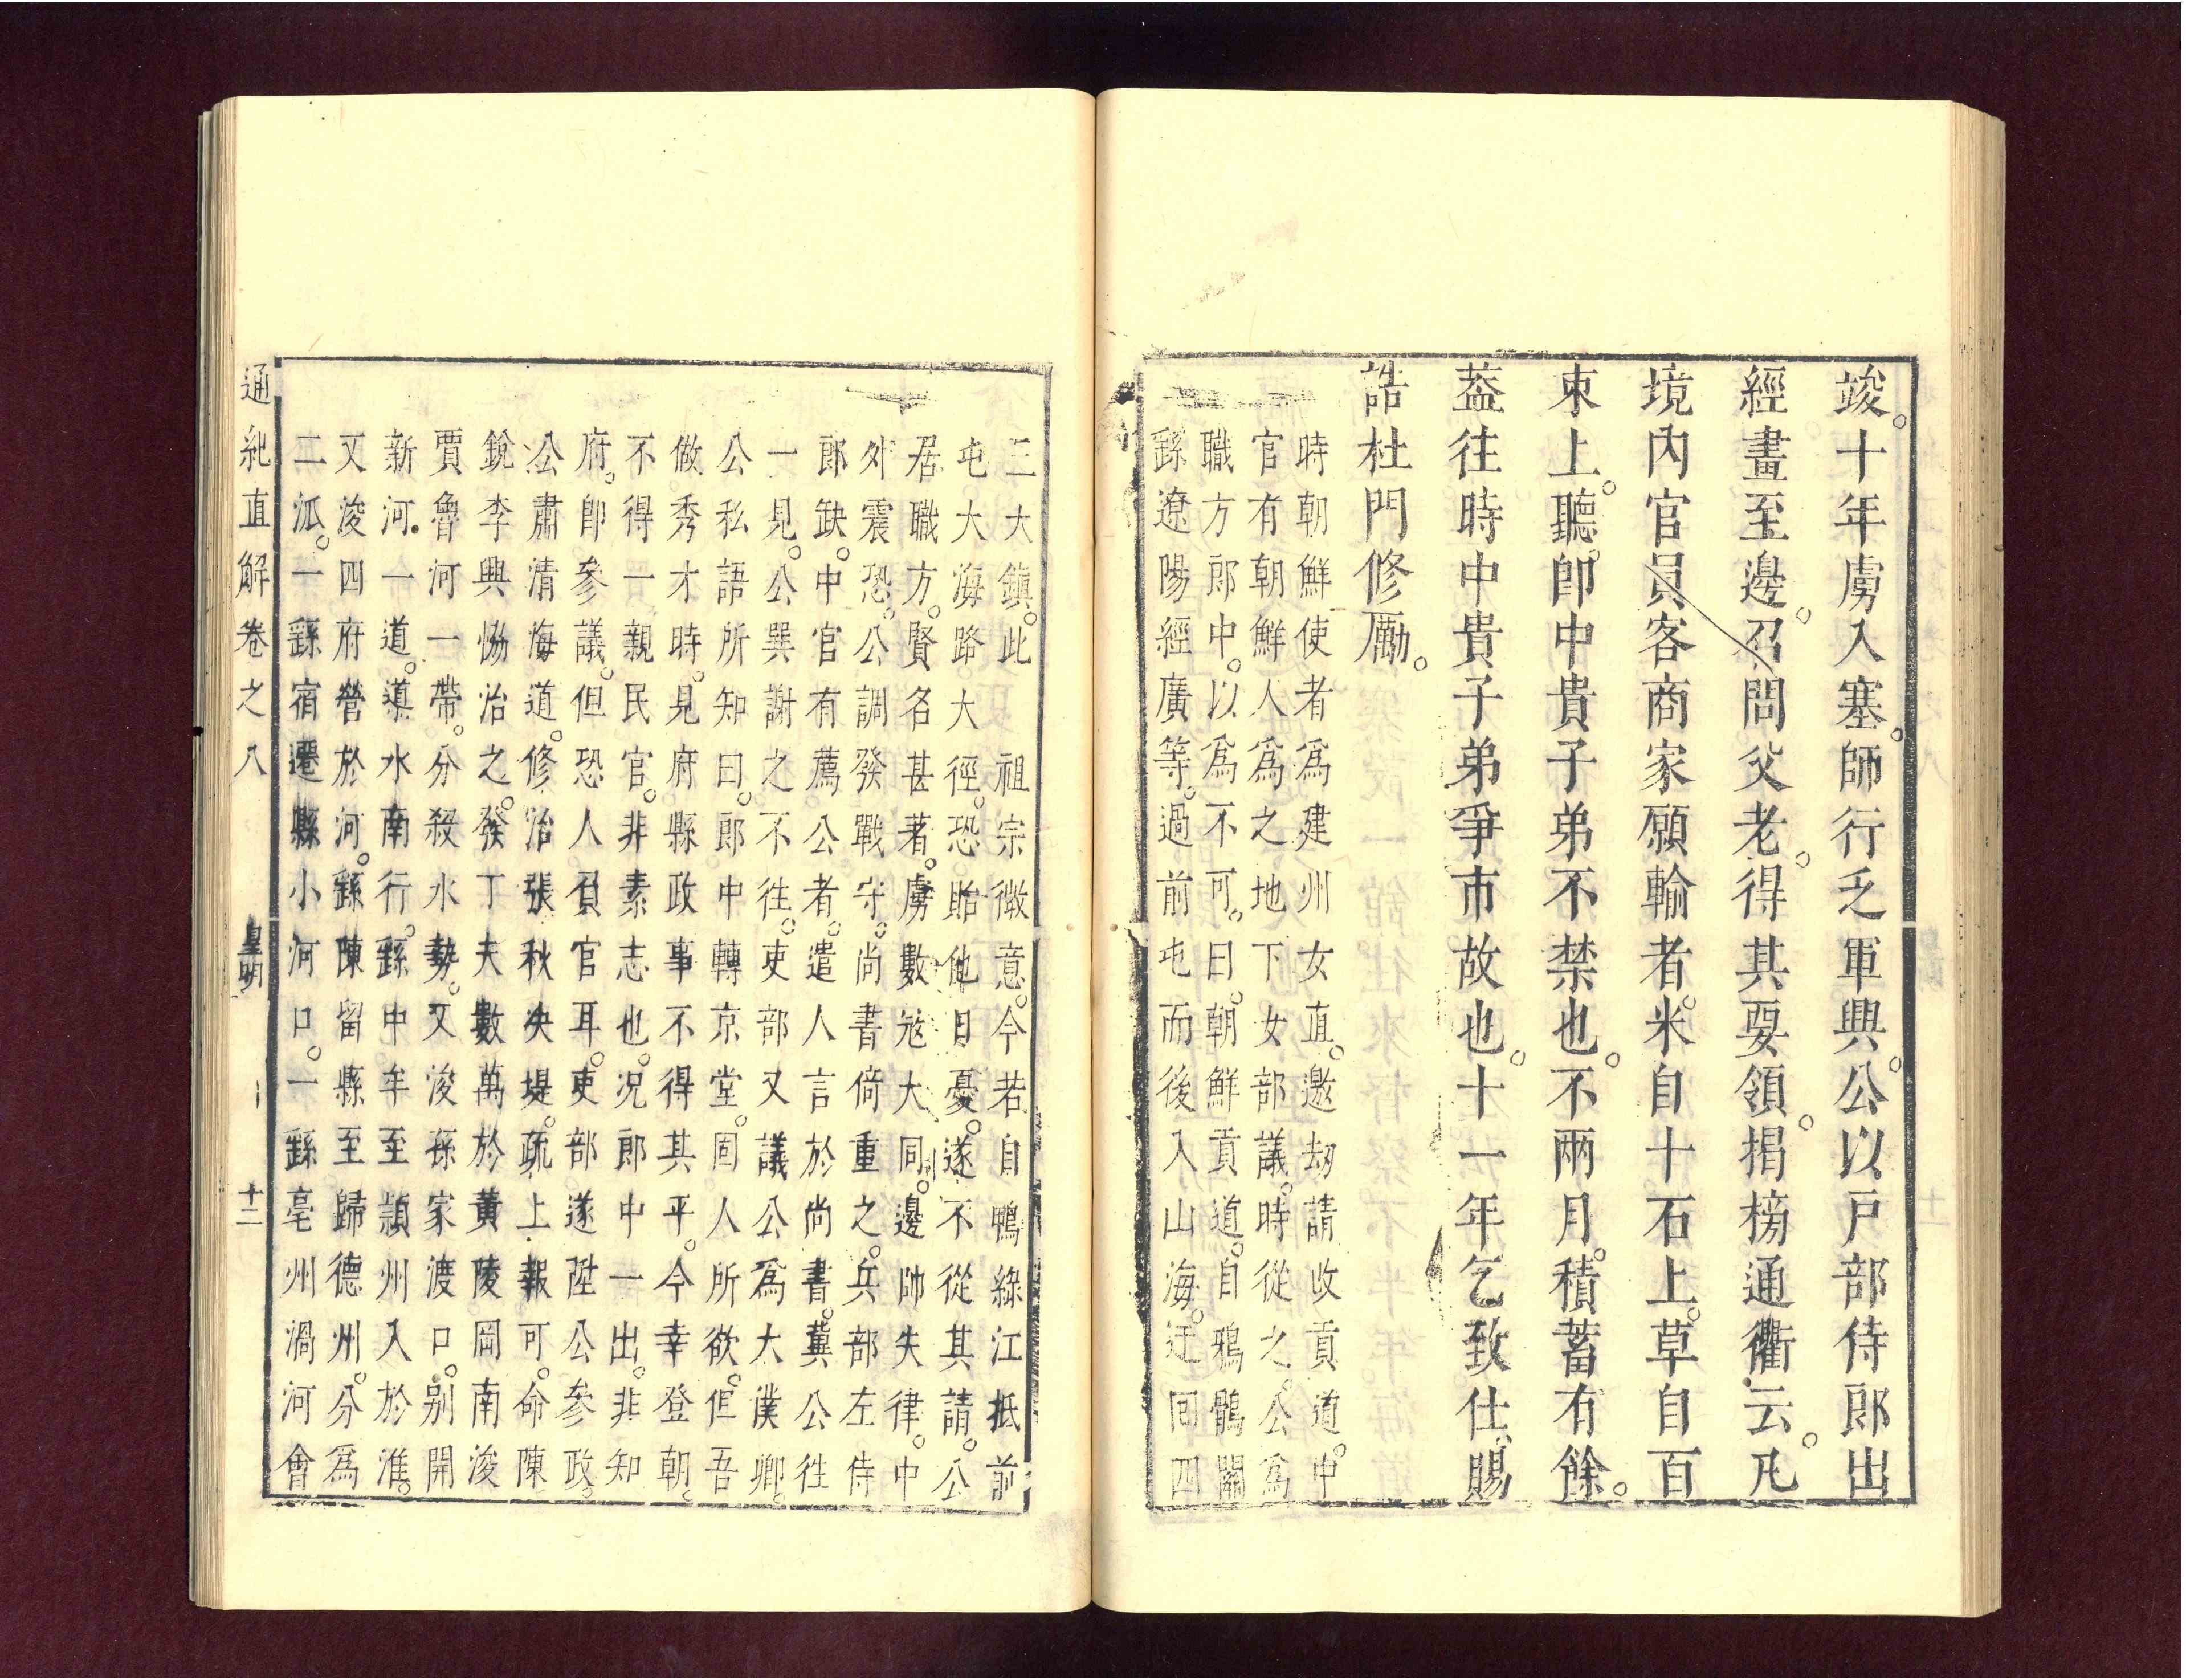 竣。十年虜入塞。師行乏軍興。公以戶部侍郎出
經畫至邊。召問父老。得其要領。揭榜通衢云。凡
境內官員客商家願輸者。米自十石上。草自百
束上。聽。卽中貴子弟不禁也。不兩月。積蓄有餘。
葢往時中貴子弟爭市故也。十一年乞致仕。賜
誥杜門修勵。
時朝鮮使者爲建州女直。邀刼請收貢道。中
官有朝鮮人爲之地下女部議。時從之。公爲
職方郎中。以爲不可。曰。朝鮮貢道。自鴉鶻關
繇遼陽經廣等。過前屯而後入山海。迂囘四
三大鎮。此　祖宗徵意。今若自鴨綠江抵前
屯大海路。大徑。恐貽他日憂。遂不從其請。公
居職方。賢名甚著。虜數寇大同。邊帥失律。中
外震恐。公調發戰守。尚書倚重之。兵部左侍
郎缺。中官有薦公者。遣人言於尚書。冀公往
一見。公巽謝之不往。吏部又議公爲大僕卿。
公私語所知曰。郎中轉京堂。固人所欲。但吾
做秀才時。見府縣政事不得其平。今幸登朝。
不得一親民官。非素志也。况郎中一出。非知
府。卽參議。但恐人負官耳。吏部遂陞公參政。
公肅清海道。修治張秋決堤。疏上報可。命陳
銳李興恊治之。發丁夫數萬於黃陵岡南浚
賈魯河一帶。分殺水勢。又浚孫家渡口。别開
新河。一道。導水南行。繇中牟至頴州入於淮。
又浚四府營於河。繇陳留縣至歸德州。分爲
二派。一繇宿遷縣小河口。一繇亳州渦河會
通紀直解卷之八　皇明　十二